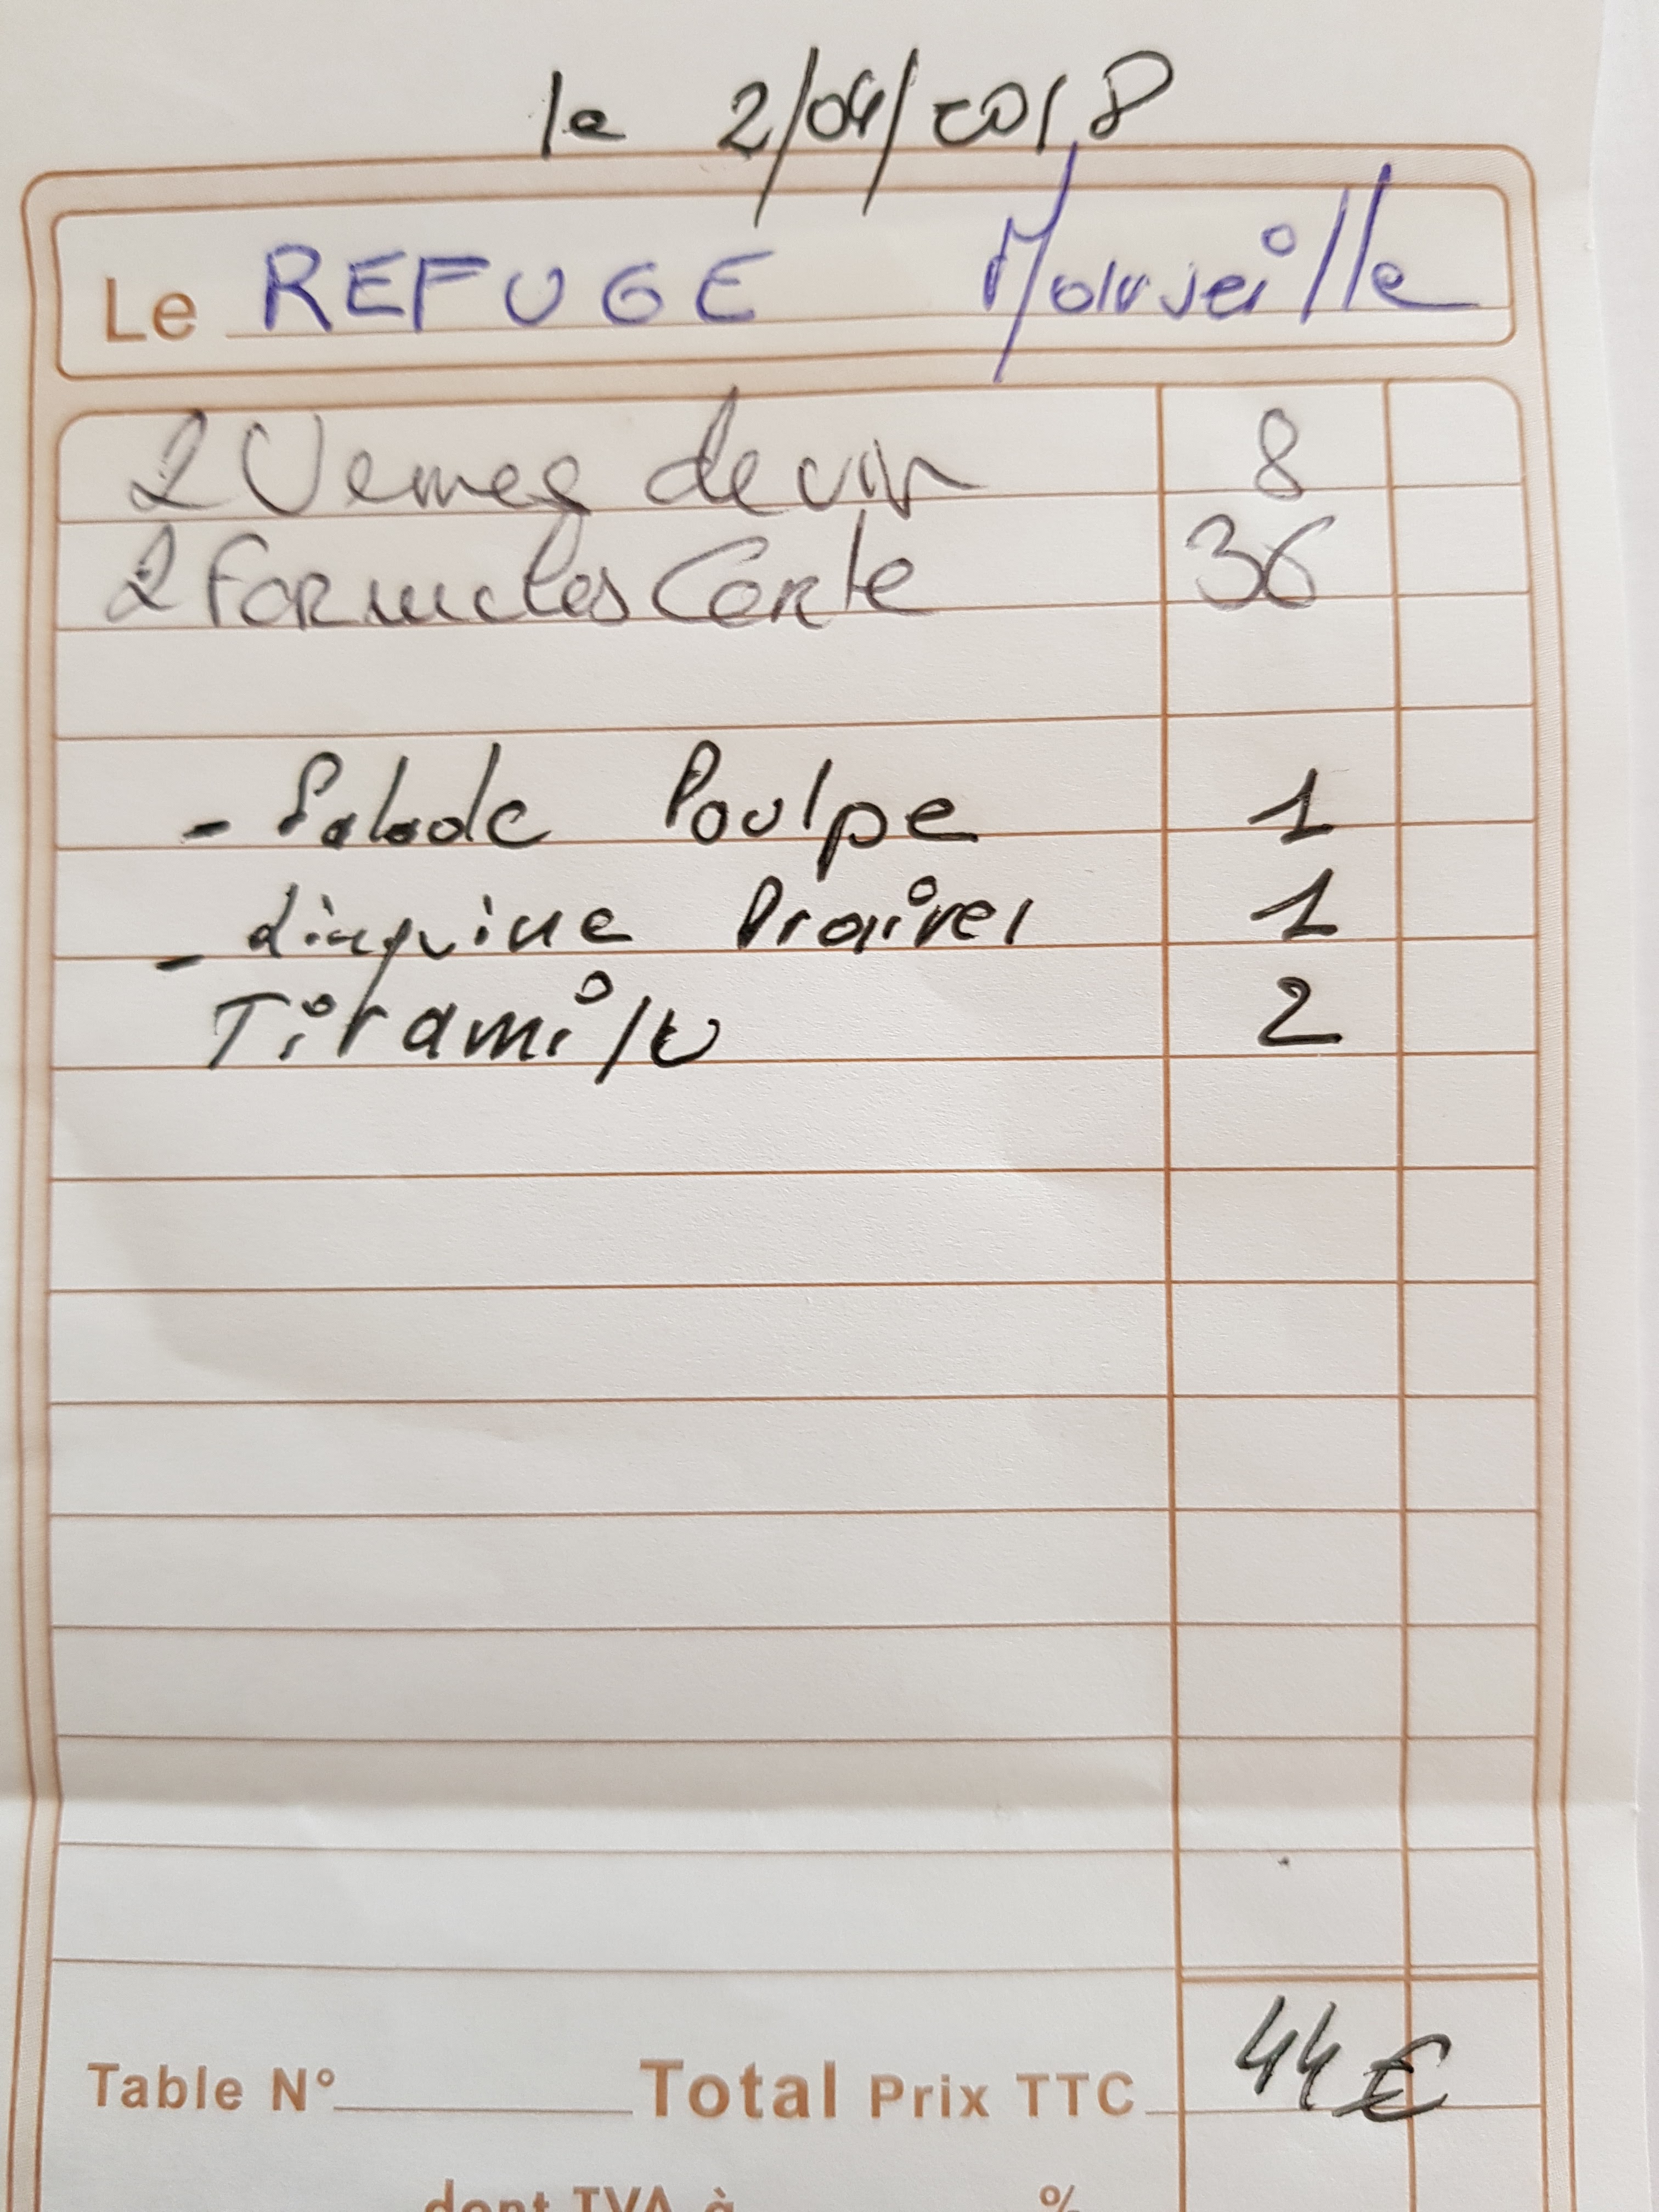 le 2/04/2018
Le REFUGE Marseille
2 Verres de vin 8
2 Formules Carte 36
- Salade Poulpe 1
- Linguine Praires 1
Tiramisu 2
Table N° Total Prix TTC 44€
dont TVA à %